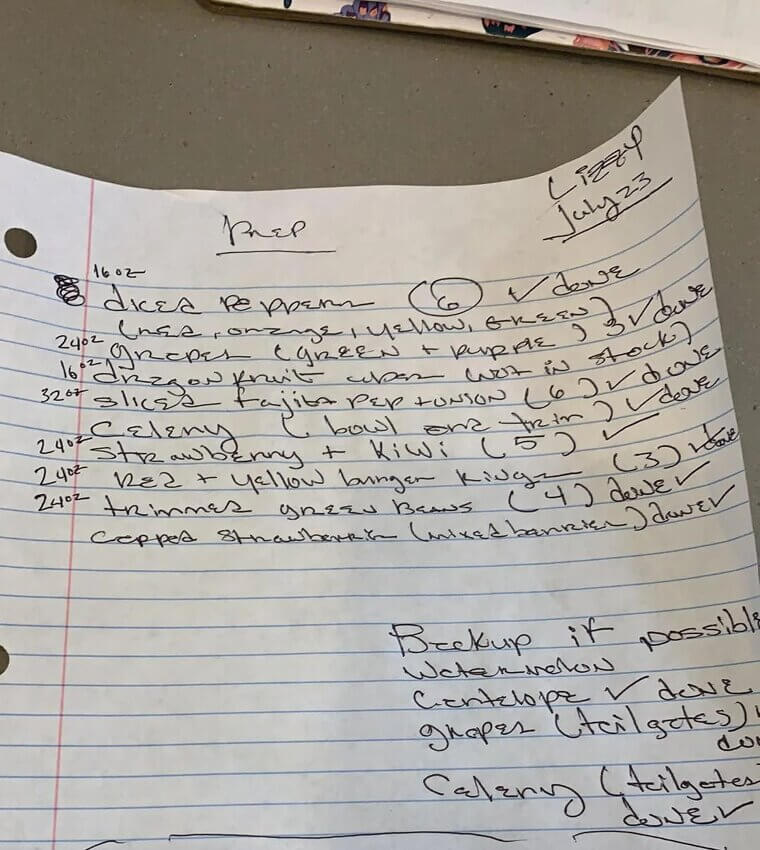 Lizzy
July 23
Prep
16oz
diced peppers (6) ✓ done
(red, orange, yellow, GREEN)
24oz grapes (GREEN + purple) 3 ✓ done
16oz dragonfruit when in stock)
32oz sliced fajita pep + onion (6) ✓ done
Celery (bowl and trim) ✓ done
24oz Strawberry + Kiwi (5) ✓
24oz RED + yellow burger Kings (3) ✓ done
24oz trimmed green Beans (4) done ✓
Capped Strawberries (mixed berries) done ✓
Backup if possible
Watermelon
Cantelope ✓ done
grapes (tailgates)
Celery (tailgates
done ✓